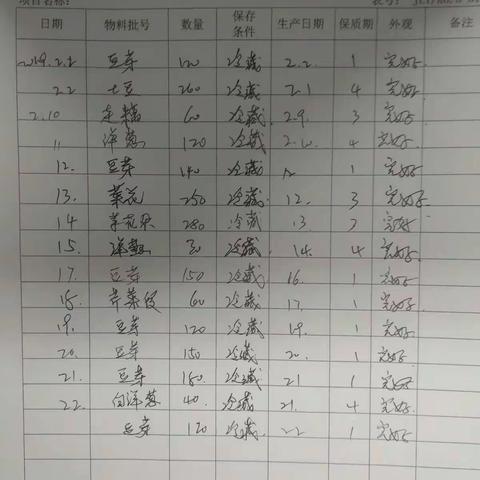 项目名称:
日期 物料批号 数量 保存条件 生产日期 保质期 外观 备注
2019.2.2 豆芽 120 冷藏 2.2. 1 完好.
2.2 土豆 260 冷藏 2.1 4 完好.
2.10 60 冷藏. 2.9. 3 完好.
11 洋葱 120 冷藏. 2.10. 4 完好.
12. 豆芽 140 冷藏 12 1 完好.
13. 菜花 250 冷藏 12. 3 完好.
14 280 冷藏 13 完好
15. 洋葱 30 冷藏. 14. 4 完好.
17. 豆芽 150 冷藏 16. 1 完好.
18. 60 冷藏 17. 1 完好.
19. 豆芽 120 冷藏 19. 1 完好.
20. 豆芽 150 冷藏. 20. 1 完好.
21. 豆芽 180. 冷藏. 21 1 完好.
22. 白洋葱 40. 冷藏. 21. 4 完好.
豆芽 120 冷藏. 22 1 完好.